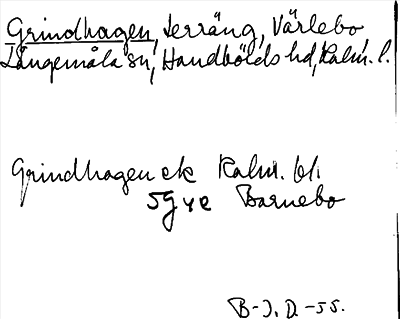 Grindhagen, terräng, Värlebo
Långemåla sn, Handbölds hd, Kalm. l.
Grindhagen ek Kalm. bl.
5g ve Barnebo
B-J. D. -55.